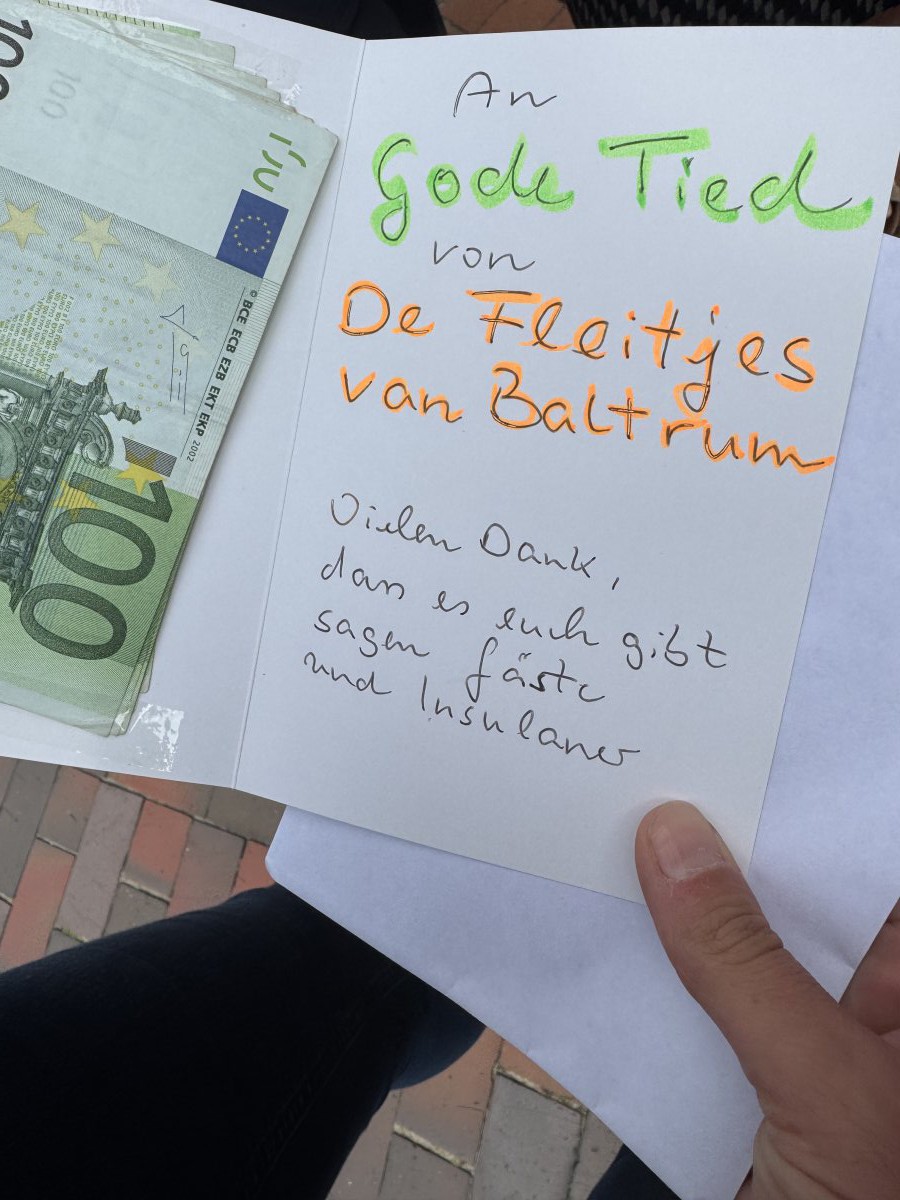 100
100
100
BCE ECB EZB EKT EKP 2002
100
An
Gode Tied
von
De Fleitjes
van Baltrum
Vielen Dank,
dass es euch gibt
sagen Gäste
und Insulaner